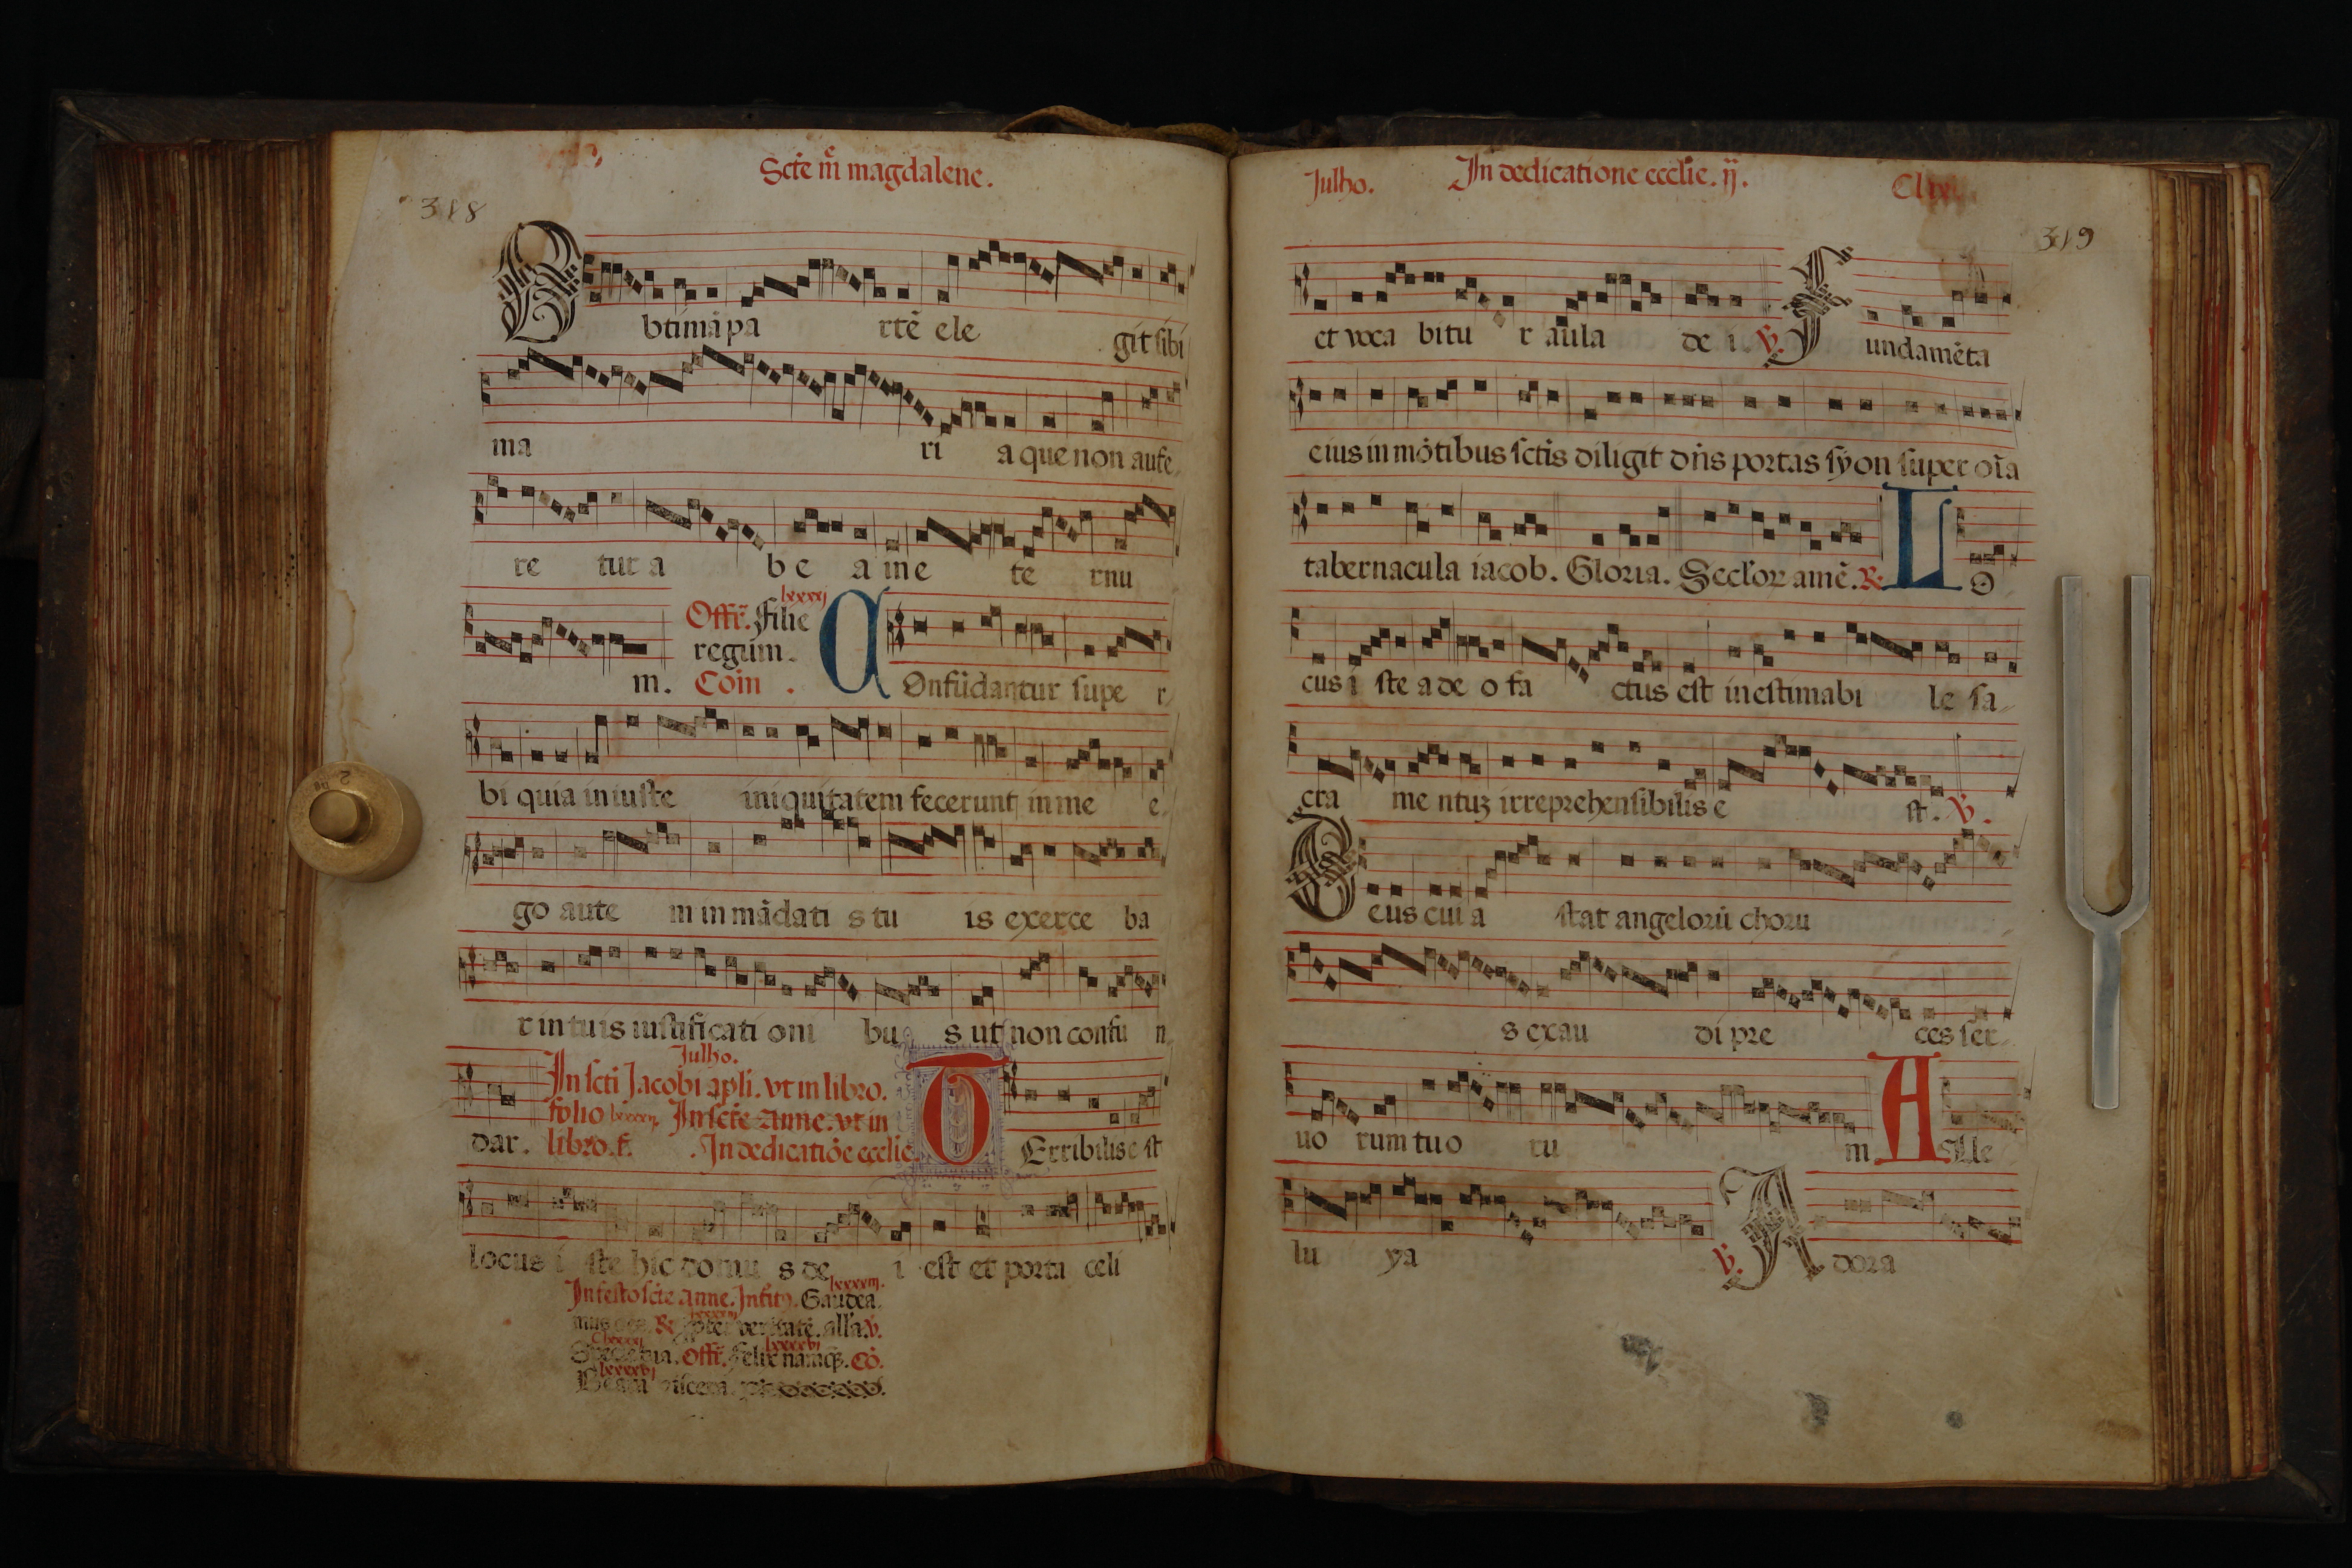 Scte mr̃ magdalene.
318
Obtimã pa rtẽ ele git sibi
ma ri a que non aufe
re tur a be a in e te rnu
lxxxxj
Offr̃. Filie
regum.
m. Com̃. COnfũdantur supe r
bi quia iniuste iniquitatem fecerunt in me e
go aute m in mãdati s tu is exerce ba
r in tuis iustificati oni bu s ut non confu n
Julho.
In scti Jacobi apli. vt in libro.
folio In scte anne. vt in
dar. libro. f. In dedicatiõe ecclie. TErribilis e st
locus i ste hic domu s de i est et porta celi
In festo scte anne. Gaudea
mus ℟ veritatẽ. alla. ℣.
tua. Offr̃. Felix namq̃. Cõ.
Beata viscera.
Julho. In dedicatione ecclie. ij.
319
et voca bitu r aula de i. ℣. Fundamẽta
eius in mõtibus sctis diligit dñs portas syon super oĩa
tabernacula iacob. Gloria. Seclor amẽ. ℟. LO
cus i ste a de o fa ctus est inestimabi le sa
cra me ntuz irreprehensibilis e st. ℣.
Deus cui a stat angelorũ choru
s exau di pre ces ser
uo rum tuo ru m Alle
lu ya ℣. Adora